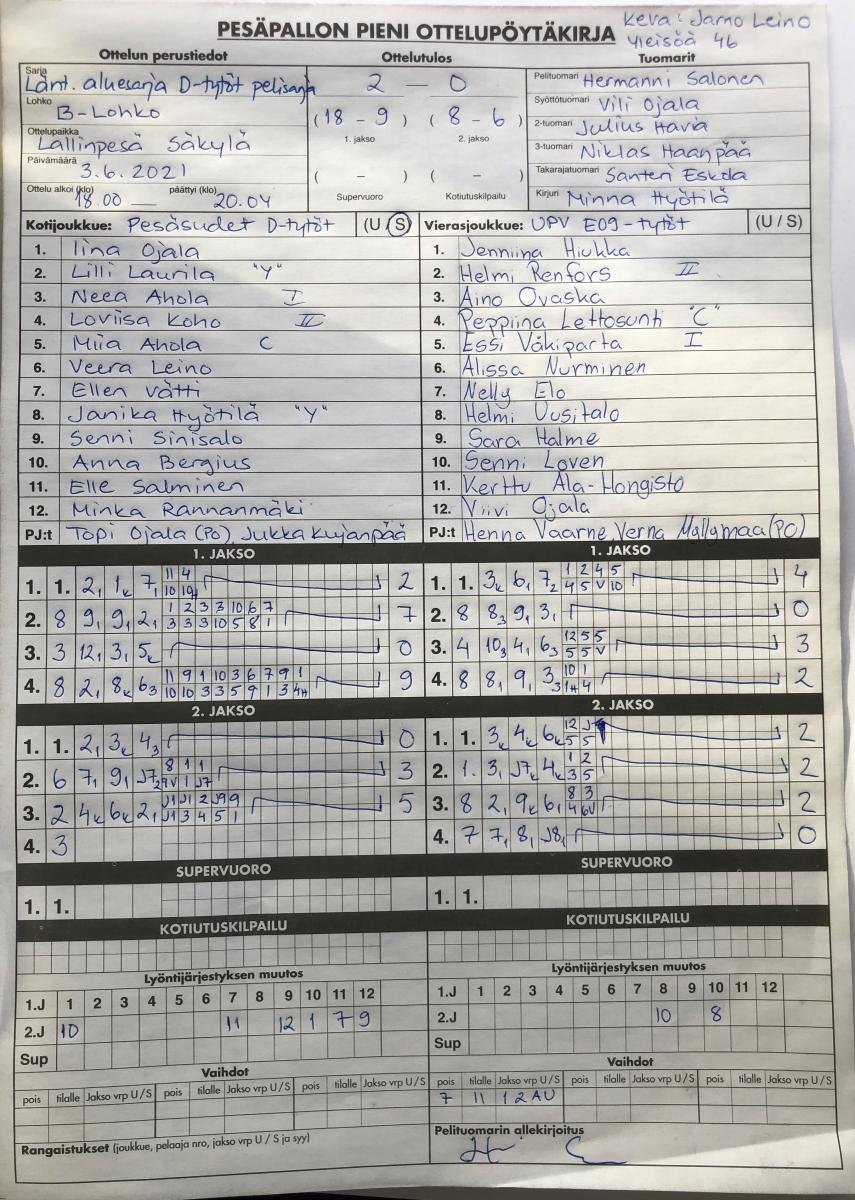 PESÄPALLON PIENI OTTELUPÖYTÄKIRJA
Keva: Jarno Leino
Yleisöä 46
Ottelun perustiedot
Ottelutulos
Tuomarit
Sarja
Länt. aluesarja D-tytöt pelisarja
Lohko
B-Lohko
Ottelupaikka
Lallinpesä Säkylä
Päivämäärä
3.6.2021
Ottelu alkoi (klo) 18.00 — päättyi (klo) 20.04
2 — 0
(18 - 9) (8 - 6)
1. jakso 2. jakso
( - ) ( - )
Supervuoro Kotiutuskilpailu
Pelituomari Hermanni Salonen
Syöttötuomari Vili Ojala
2-tuomari Julius Havia
3-tuomari Niklas Haanpää
Takarajatuomari Santeri Eskola
Kirjuri Minna Hyötilä
Kotijoukkue: Pesäsudet D-tytöt (U S)
1. Iina Ojala
2. Lilli Laurila "Y"
3. Neea Ahola I
4. Loviisa Koho II
5. Miia Ahola C
6. Veera Leino
7. Ellen Vätti
8. Janika Hyötilä "Y"
9. Senni Sinisalo
10. Anna Bergius
11. Elle Salminen
12. Minka Rannanmäki
PJ:t Topi Ojala (PO), Jukka Kujanpää
Vierasjoukkue: UPV E09-tytöt (U / S)
1. Jenniina Hiukka
2. Helmi Renfors II
3. Aino Ovaska
4. Peppiina Lettosunti "C"
5. Essi Väkiparta I
6. Alissa Nurminen
7. Nelly Elo
8. Helmi Uusitalo
9. Sara Halme
10. Senni Loven
11. Kerttu Ala-Hongisto
12. Viivi Ojala
PJ:t Henna Vaarne, Verna Myllymaa (PO)
1. JAKSO
1. 1. 2, 1k 7, 2
2. 8 9, 9, 2, 7
3. 3 12, 3, 5k 0
4. 8 2, 8k 63 9
1. JAKSO
1. 1. 3k 6, 72 4
2. 8 83 9, 3, 0
3. 4 103 4, 63 3
4. 8 8, 9, 33 2
2. JAKSO
1. 1. 2, 3k 43 0
2. 6 7, 9, J72 3
3. 2 4k 6k 2, 5
4. 3
2. JAKSO
1. 1. 3k 4k 6k 2
2. 1. 3, J7k 4k 2
3. 8 2, 9k 6, 2
4. 7 7, 8, J8, 0
SUPERVUORO
1. 1.
SUPERVUORO
1. 1.
KOTIUTUSKILPAILU
KOTIUTUSKILPAILU
Lyöntijärjestyksen muutos
1.J 1 2 3 4 5 6 7 8 9 10 11 12
2.J 10 11 12 1 7 9
Sup
Lyöntijärjestyksen muutos
1.J 1 2 3 4 5 6 7 8 9 10 11 12
2.J 10 8
Sup
Vaihdot
pois tilalle Jakso vrp U/S pois tilalle Jakso vrp U/S pois tilalle Jakso vrp U/S
Vaihdot
pois tilalle Jakso vrp U/S pois tilalle Jakso vrp U/S pois tilalle Jakso vrp U/S
7 11 1 2AU
Rangaistukset (joukkue, pelaaja nro, jakso vrp U / S ja syy)
Pelituomarin allekirjoitus